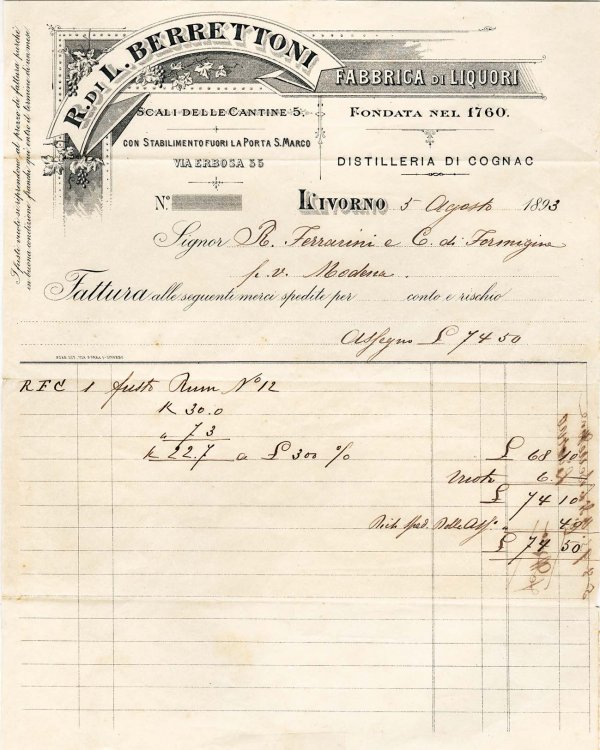 R. DI L. BERRETTONI
FABBRICA DI LIQUORI
SCALI DELLE CANTINE 5.
FONDATA NEL 1760.
CON STABILIMENTO FUORI LA PORTA S. MARCO
VIA ERBOSA 55
DISTILLERIA DI COGNAC
N.º
LIVORNO 5 Agosto 1893
Signor R. Ferrarini e C. di Formigine
p. v. Modena.
Fattura alle seguenti merci spedite per conto e rischio
Assegno £ 7450
R F C 1 fusto Rum Nº 12
K 30.0
" 7 3
K 22.7 a £ 300 % £ 68 10
vuoto 6.
£ 74 10
£ 74 50
I fusti vuoti si riprendono al prezzo di fattura purchè
in buona condizione franchi qui entro il termine di un mese.